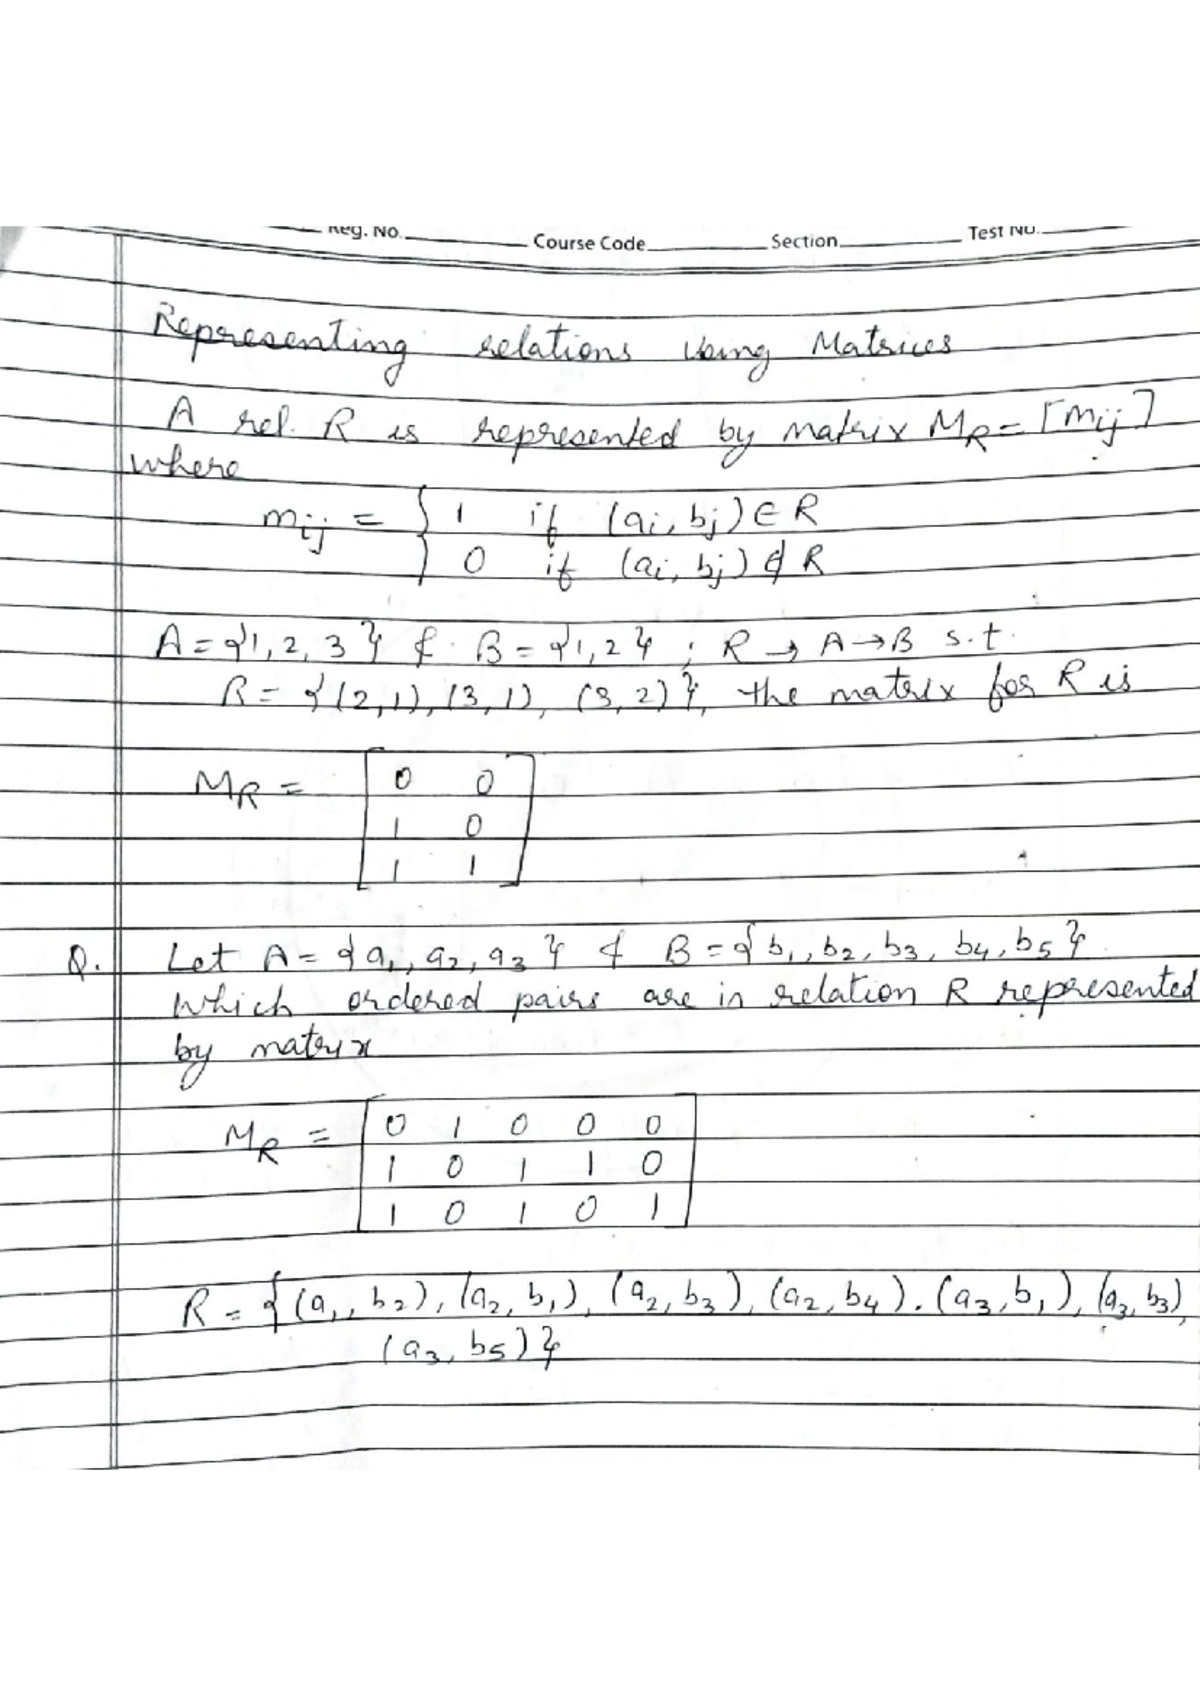 Reg. No. Course Code Section Test No.
Representing relations Using Matrices
A rel. R is represented by matrix MR = [mij]
where
mij = { 1 if (ai, bj) ∈ R
0 if (ai, bj) ∉ R
A = {1, 2, 3} & B = {1, 2} ; R → A → B s.t.
R = {(2,1), (3, 1), (3, 2)}, the matrix for R is
MR = [ 0 0
1 0
1 1 ]
Q. Let A = {a1, a2, a3} & B = {b1, b2, b3, b4, b5}.
Which ordered pairs are in relation R represented
by matrix
MR = [ 0 1 0 0 0
1 0 1 1 0
1 0 1 0 1 ]
R = {(a1, b2), (a2, b1), (a2, b3), (a2, b4). (a3, b1), (a3, b3),
(a3, b5)}